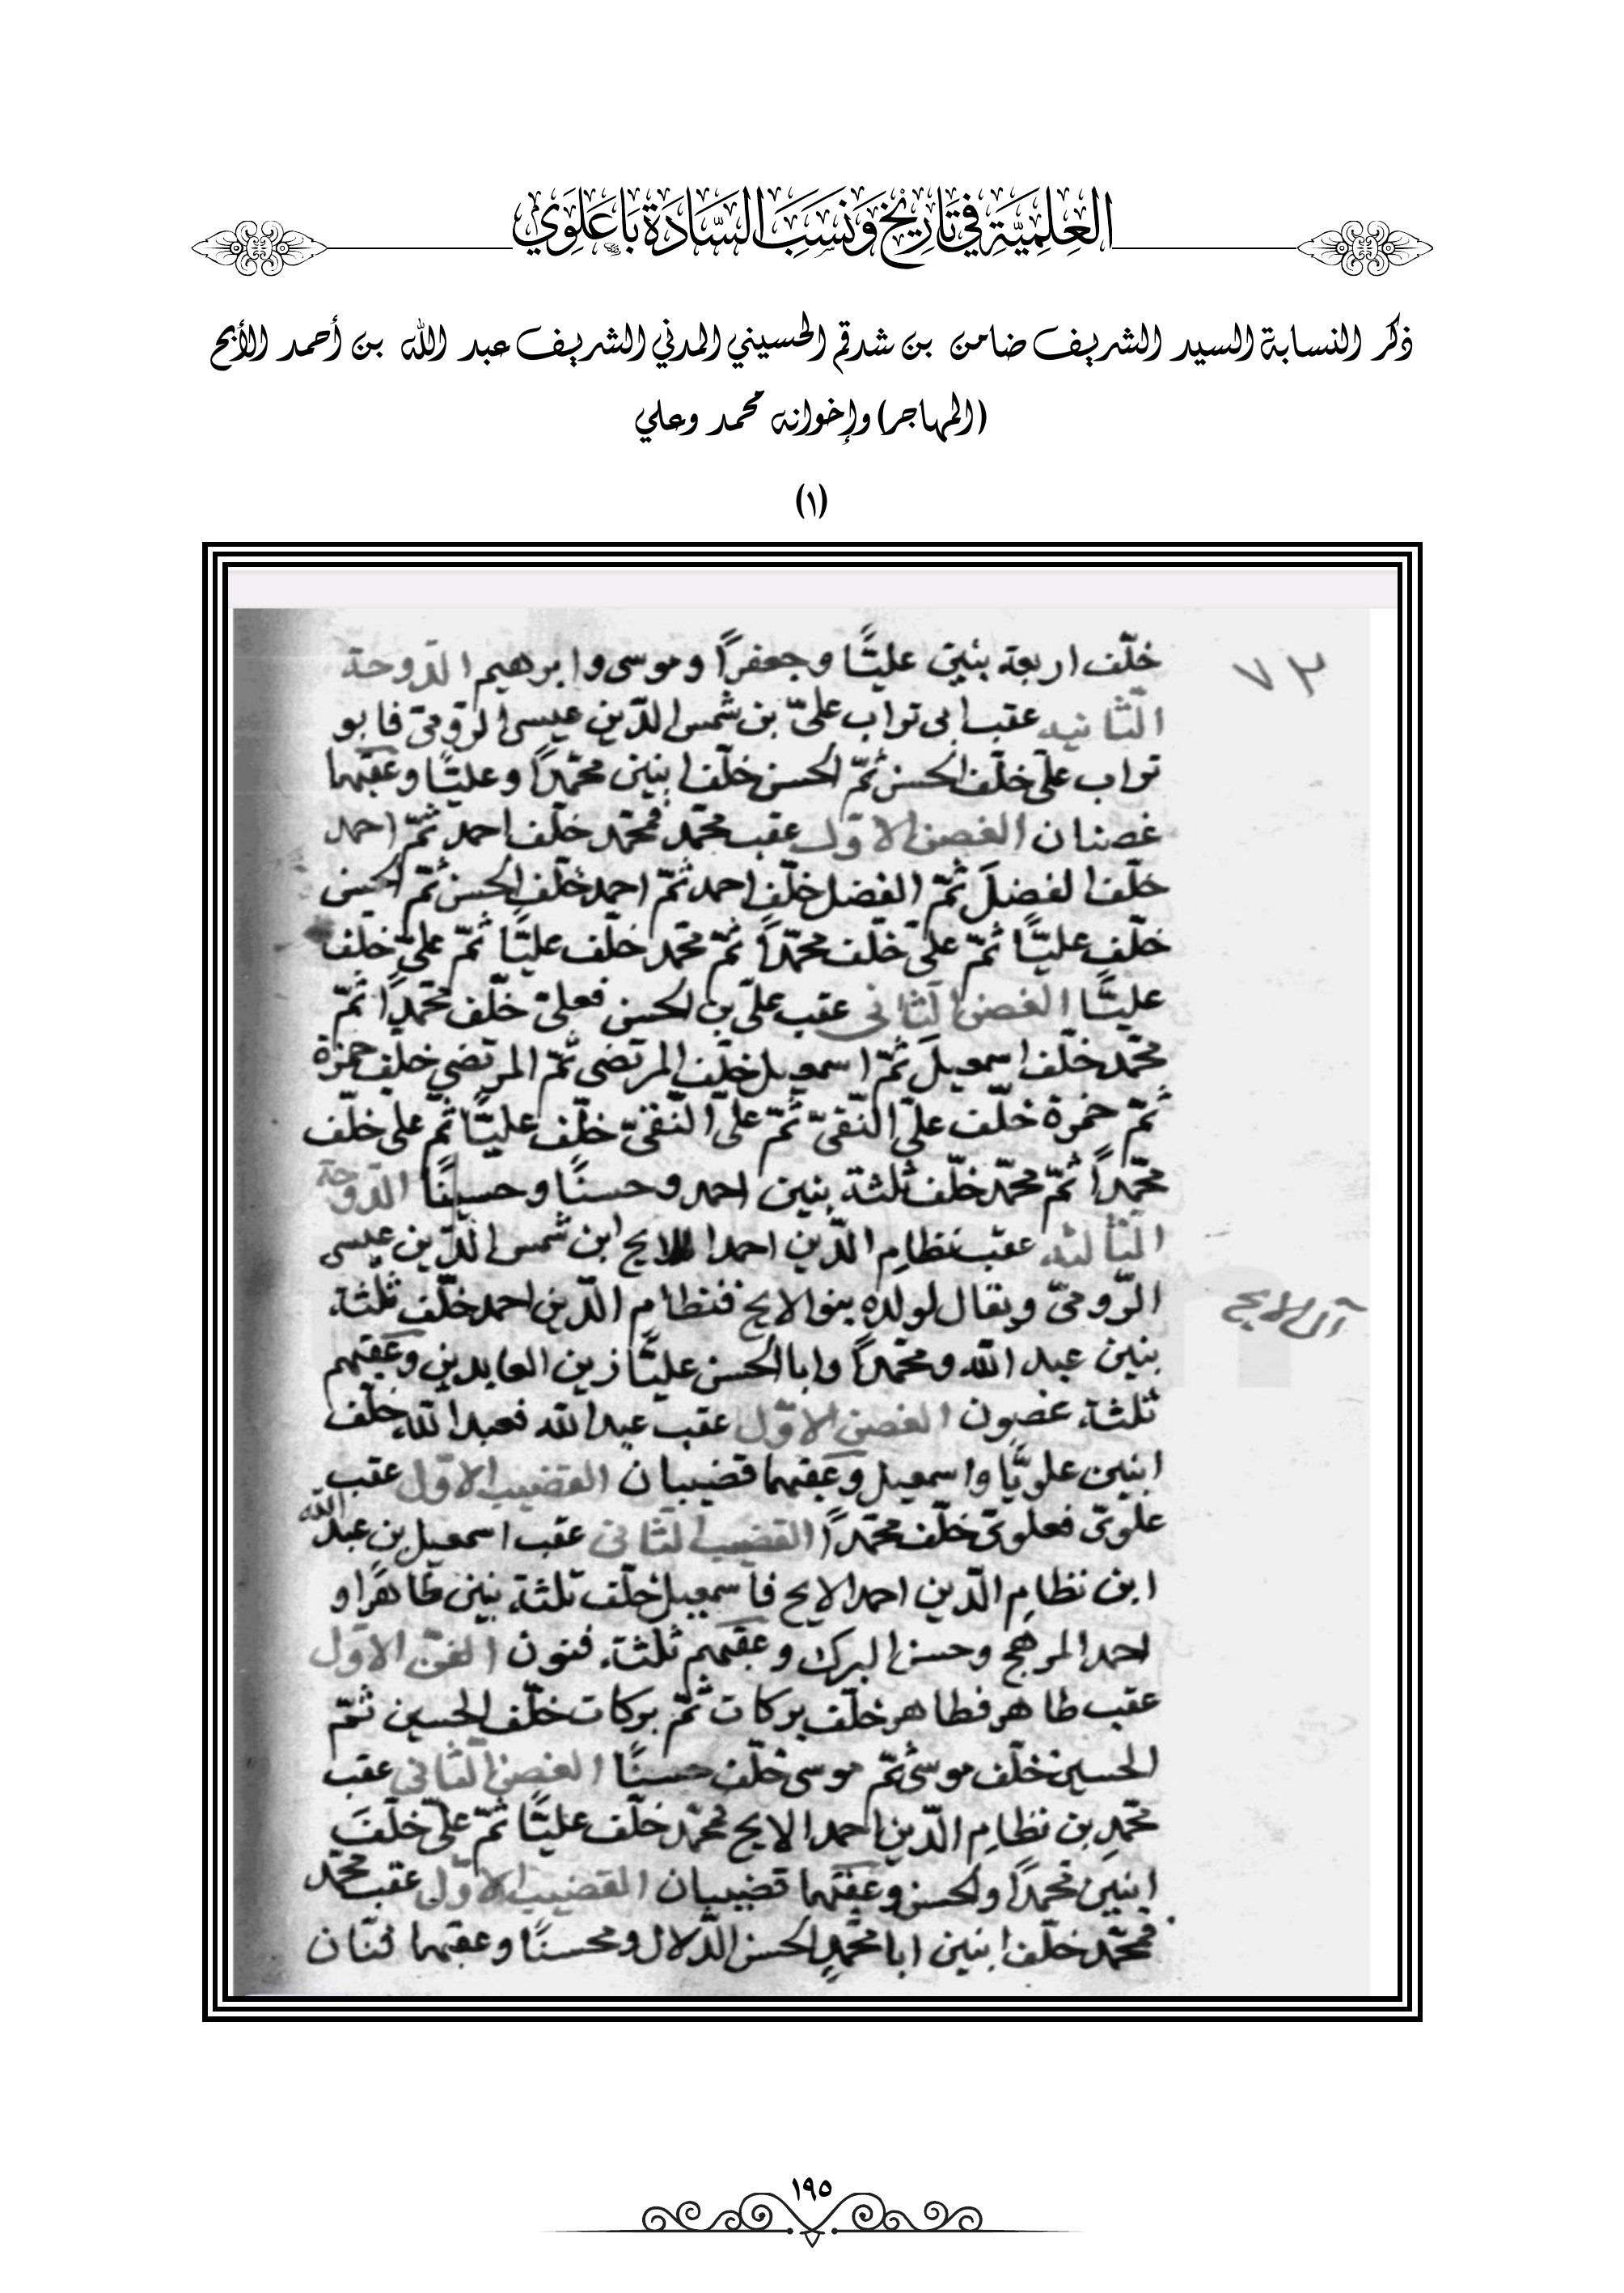 العِلْمِيَّة فِي تَارِيْخ وَنَسَب السَّادَة بَاعَلَوِي
ذكر النسابة السيد الشريف ضامن بن شدقم الحسيني المدني الشريف عبد الله بن أحمد الأبح
(المهاجر) وإخوانه محمد وعلي
(١)
٧٣
خلّف اربعة بنين عليًّا وجعفرًا وموسى وابرهيم الدّوحة
الثّانيه عقب ابى تراب علىّ بن شمس الدّين عيسى الرّومىّ فابو
تراب علىّ خلّف الحسن ثمّ الحسن خلّف ابنين محمّدًا وعليًّا وعقبهما
غصنان الغصن الاوّل عقب محمّد فمحمّد خلّف احمد ثمّ احمد
خلّف الفضلَ ثمّ الفضل خلّف احمد ثمّ احمد خلّف الحسن ثمّ الحسن
خلّف عليًّا ثمّ علىّ خلّف محمّدًا ثمّ محمّد خلّف عليًّا ثمّ علىّ خلّف
عليًّا الغصن الثّانى عقب علىّ بن الحسن فعلىّ خلّف محمّدًا ثمّ
محمّد خلّف اسمعيلَ ثمّ اسمعيل خلّف المرتضى ثمّ المرتضى خلّف حمزة
ثمّ حمزة خلّف علىّ النّقىّ ثمّ علىّ النّقىّ خلّف عليًّا ثمّ على خلّف
محمّدًا ثمّ محمّد خلّف ثلثة بنين احمد وحسنًا وحسينًا الدّوحة
الثّالثه عقب نظام الدّين احمد الابح ابن شمس الدّين عيسى
الرّومىّ ويقال لولده بنو الابح فنظام الدّين احمد خلّف ثلثة
آل الابح
بنين عبد الله ومحمّدًا وابا الحسن عليًّا زين العابدين وعقبهم
ثلثة غصون الغصن الاوّل عقب عبد الله فعبد الله خلّف
ابنين علويًّا واسمعيل وعقبهما قضيبان القضيب الاوّل عقب
علوىّ فعلوىّ خلّف محمّدًا القضيب الثّانى عقب اسمعيل بن عبد الله
ابن نظام الدّين احمد الابح فاسمعيل خلّف ثلثة بنين طاهرًا و
احمد المرهج وحسن البرك وعقبهم ثلثة فنون الفنّ الاوّل
عقب طاهر فطاهر خلّف بركات ثمّ بركات خلّف الحسين ثمّ
الحسين خلّف موسى ثمّ موسى خلّف حسنًا الغصن الثّانى عقب
محمّد بن نظام الدّين احمد الابح فمحمّد خلّف عليًّا ثمّ علىّ خلّفَ
ابنين محمدًا والحسن وعقبهما قضيبان القضيب الاوّل عقب محمّد
فمحمّد خلّف ابنين ابا محمّد الحسن الدّلال ومحسنًا وعقبهما فنّان
١٩٥